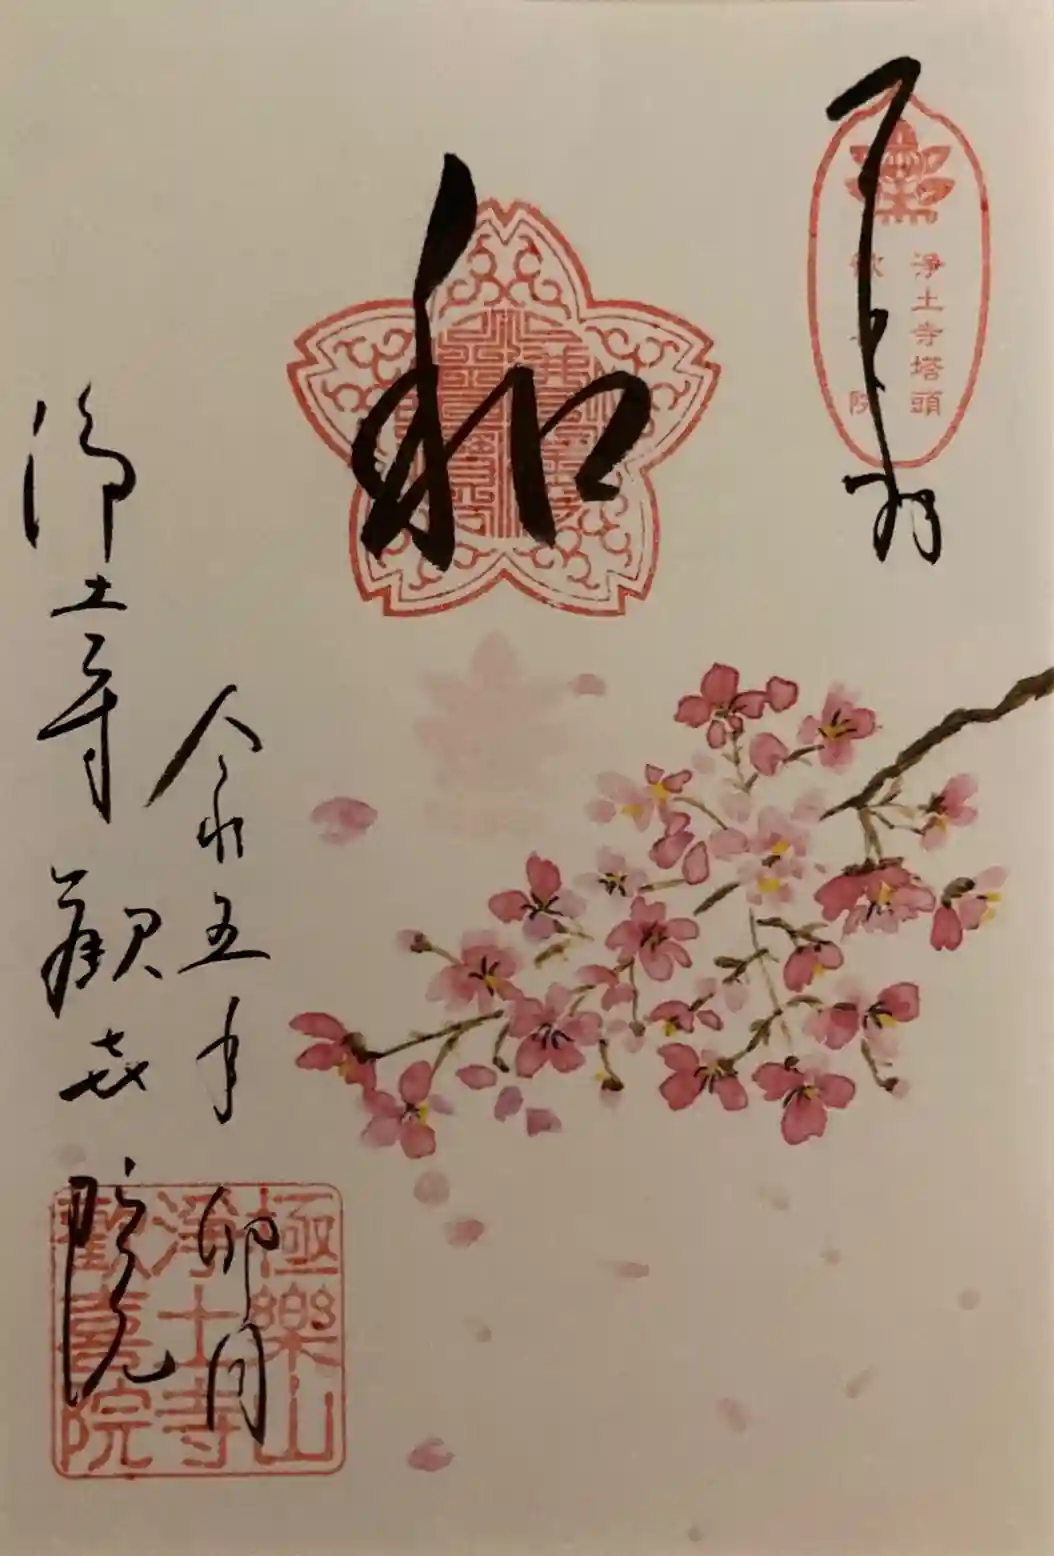 奉拝
浄土寺塔頭
歓喜院
和
令和五年
卯月
浄土寺
歓喜院
極樂山
浄土寺
歡喜院